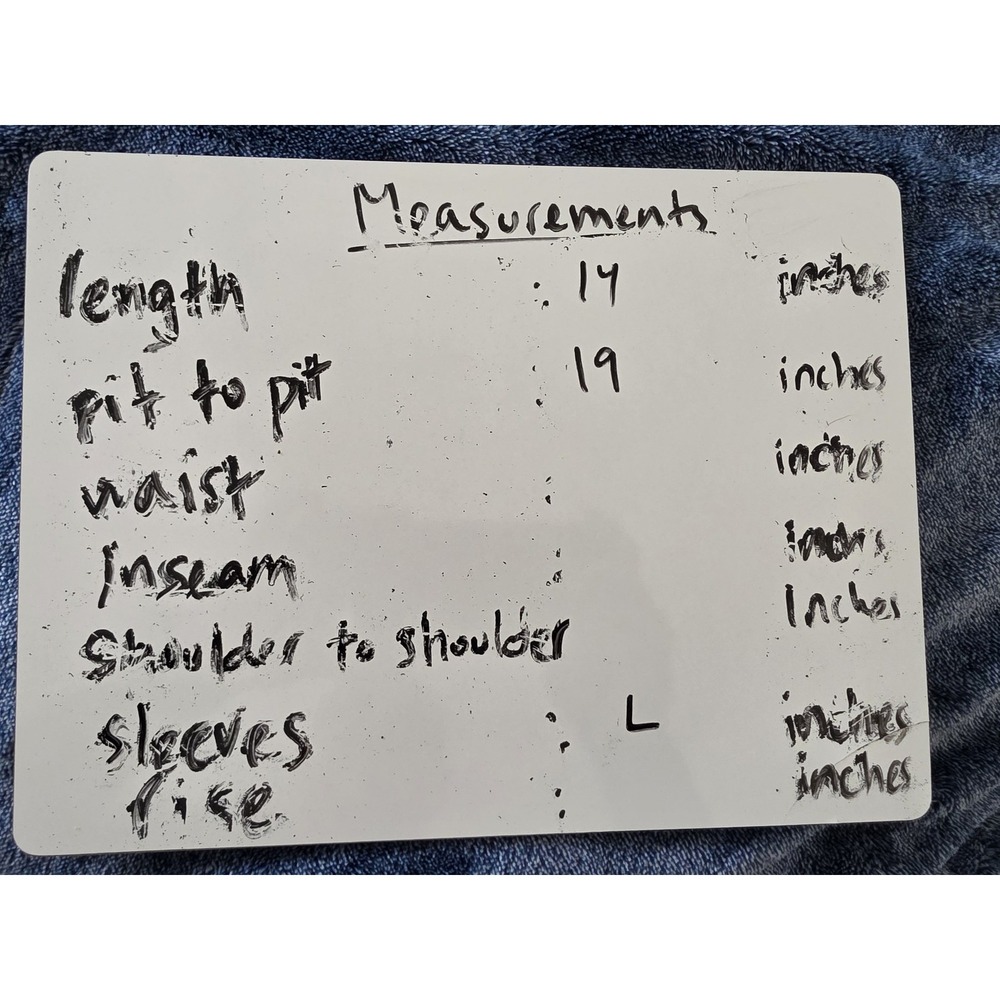 Measurements
length : 14 inches
pit to pit : 19 inches
waist : inches
inseam : inches
shoulder to shoulder inches
sleeves : L inches
rise : inches